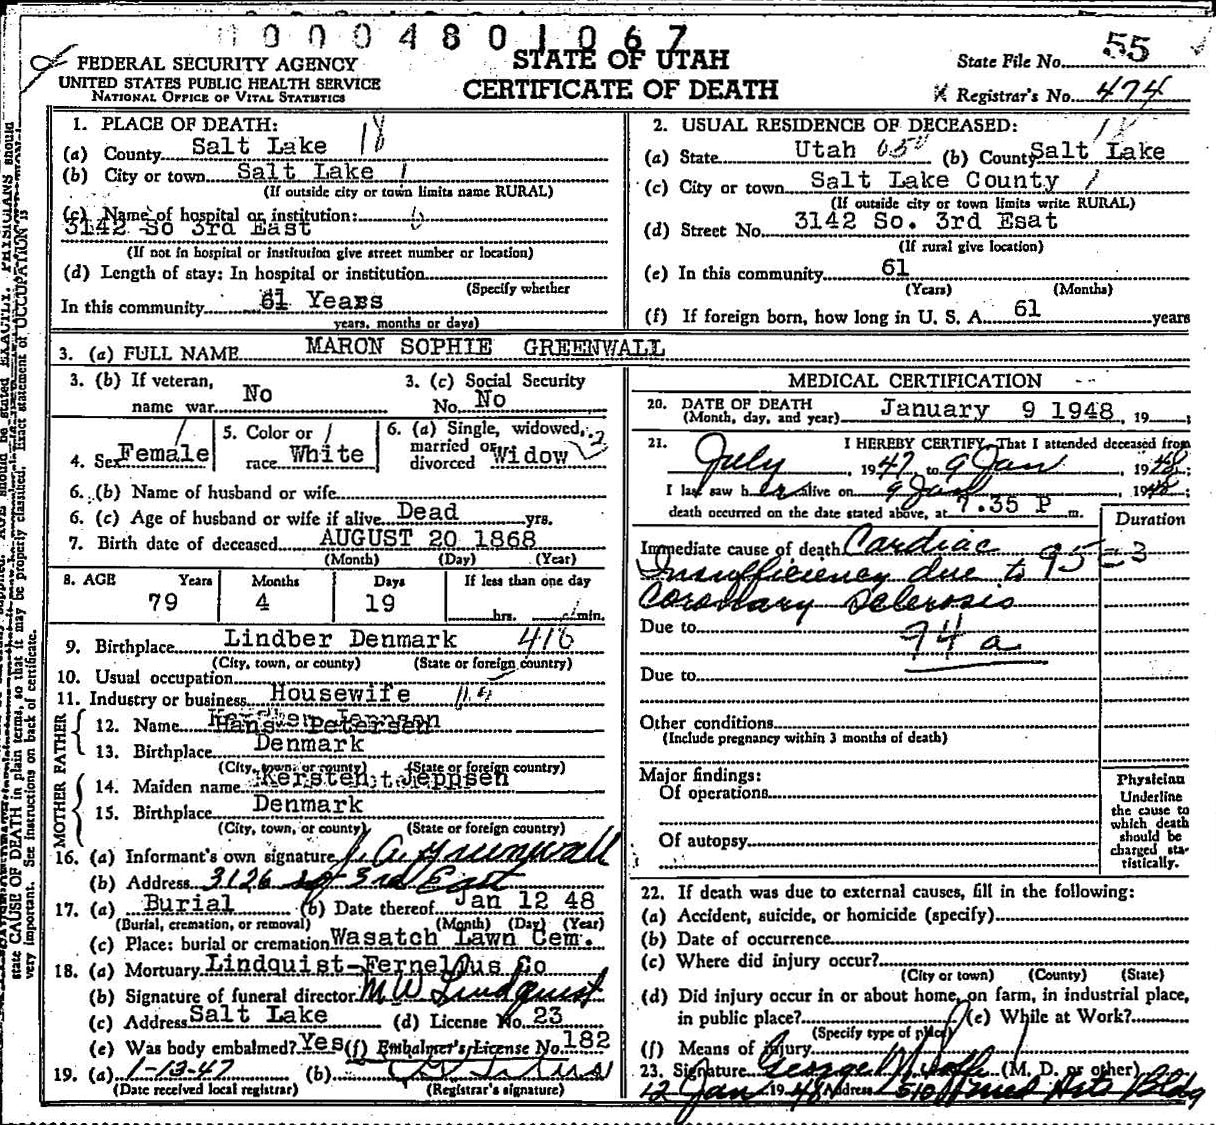 00004801067
FEDERAL SECURITY AGENCY
UNITED STATES PUBLIC HEALTH SERVICE
NATIONAL OFFICE OF VITAL STATISTICS
STATE OF UTAH
CERTIFICATE OF DEATH
State File No. 55
Registrar's No. 474
1. PLACE OF DEATH: 18
(a) County Salt Lake
(b) City or town Salt Lake 1
(If outside city or town limits name RURAL)
(c) Name of hospital or institution:
3142 So 3rd East
(If not in hospital or institution give street number or location)
(d) Length of stay: In hospital or institution
(Specify whether
In this community 61 Years
years, months or days)
2. USUAL RESIDENCE OF DECEASED: 18
(a) State Utah 050 (b) County Salt Lake
(c) City or town Salt Lake County 1
(If outside city or town limits write RURAL)
(d) Street No. 3142 So. 3rd Esat
(If rural give location)
(e) In this community 61
(Years) (Months)
(f) If foreign born, how long in U. S. A. 61 years
3. (a) FULL NAME MARON SOPHIE GREENWALL
3. (b) If veteran, name war No
3. (c) Social Security No. No
4. Sex Female
5. Color or race White
6. (a) Single, widowed, married or divorced Widow 2
6. (b) Name of husband or wife
6. (c) Age of husband or wife if alive Dead yrs.
7. Birth date of deceased AUGUST 20 1868
(Month) (Day) (Year)
8. AGE Years Months Days If less than one day
79 4 19 hrs. min.
9. Birthplace Lindber Denmark 416
(City, town, or county) (State or foreign country)
10. Usual occupation
11. Industry or business Housewife
FATHER
12. Name Hans Petersen
13. Birthplace Denmark
(City, town, or county) (State or foreign country)
MOTHER
14. Maiden name Kersten Jeppsen
15. Birthplace Denmark
(City, town, or county) (State or foreign country)
16. (a) Informant's own signature J. A. Greenwall
(b) Address 3126 So 3rd East
17. (a) Burial (b) Date thereof Jan 12 48
(Burial, cremation, or removal) (Month) (Day) (Year)
(c) Place: burial or cremation Wasatch Lawn Cem.
18. (a) Mortuary Lindquist-Fernelius Co
(b) Signature of funeral director M W Lindquist
(c) Address Salt Lake (d) License No. 23
(e) Was body embalmed? Yes (f) Embalmer's License No. 182
19. (a) 1-13-47 (b)
(Date received local registrar) (Registrar's signature)
MEDICAL CERTIFICATION
20. DATE OF DEATH
(Month, day, and year) January 9 1948, 19
21. I HEREBY CERTIFY, That I attended deceased from
July, 1947, to 9 Jan, 1948;
I last saw her alive on 9 Jan, 1948;
death occurred on the date stated above, at 7.35 P m.
Duration
Immediate cause of death Cardiac
Insufficiency due to 95-3
Coronary Sclerosis
Due to 94 a
Due to
Other conditions
(Include pregnancy within 3 months of death)
Major findings:
Of operations
Of autopsy
Physician
Underline
the cause to
which death
should be
charged sta-
tistically.
22. If death was due to external causes, fill in the following:
(a) Accident, suicide, or homicide (specify)
(b) Date of occurrence
(c) Where did injury occur?
(City or town) (County) (State)
(d) Did injury occur in or about home, on farm, in industrial place,
in public place? (e) While at Work?
(Specify type of place)
(f) Means of Injury
23. Signature George (M. D. or other)
12 Jan 1948 Address 510 Med Arts Bldg
state CAUSE OF DEATH in plain terms, so that it may be properly classified. Exact statement of OCCUPATION is
very important. See instructions on back of certificate.